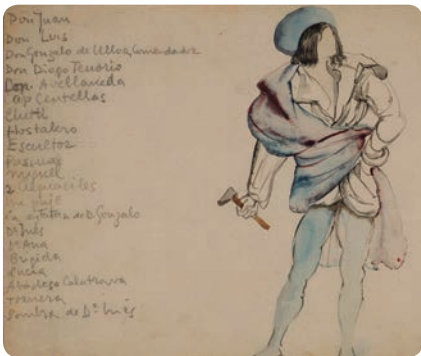 Don Juan
Don Luis
Don Gonzalo de Ulloa, Comendador
Don Diego Tenorio
Cap. Avellaneda
Cap Centellas
Ciutti
Hostalero
Escultor
Pascual
Miguel
2 Alguaciles
Un paje
La estatua de D. Gonzalo
Dª Inés
Dª Ana
Brígida
Lucía
Abadesa Calatrava
Tornera
Sombra de Dª Inés